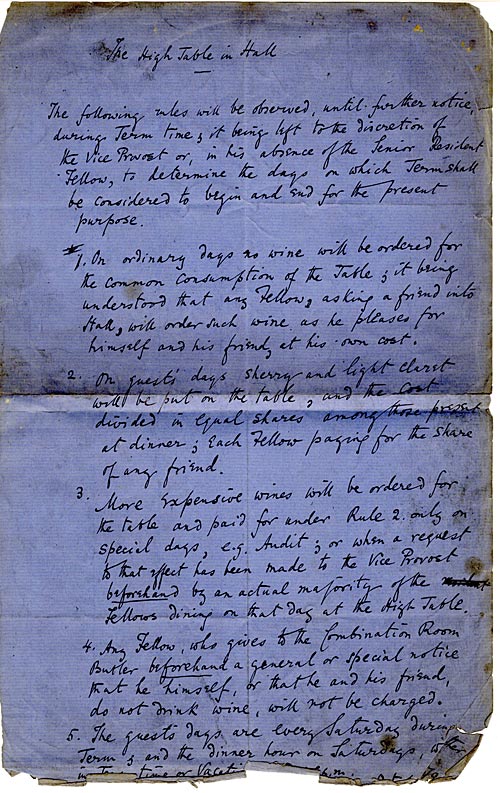 The High Table in Hall
The following rules will be observed, until further notice,
during Term time; it being left to the discretion of
the Vice Provost or, in his absence of the Senior Resident
Fellow, to determine the days on which Term shall
be considered to begin and end for the present
purpose.
1. On ordinary days no wine will be ordered for
the common consumption of the Table; it being
understood that any Fellow, asking a friend into
Hall, will order such wine as he pleases for
himself and his friend, at his own cost.
2. On guests' days sherry and light claret
will be put on the table, and the cost
divided in equal shares among those present
at dinner; Each Fellow paying for the share
of any friend.
3. More Expensive wines will be ordered for
the table and paid for under Rule 2. only on
special days, e.g. Audit; or when a request
to that effect has been made to the Vice Provost
beforehand by an actual majority of the
Fellows dining on that day at the High Table.
4. Any Fellow, who gives to the Combination Room
Butler beforehand a general or special notice
that he himself, or that he and his friend,
do not drink wine, will not be charged.
5. The guests' days are every Saturday during
Term; and the dinner hour on Saturdays,
in time or